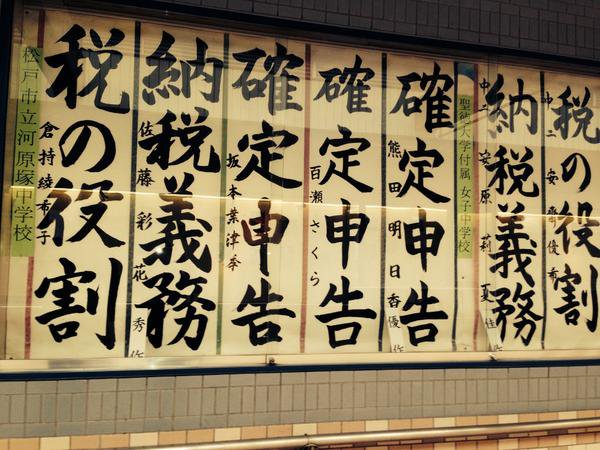 税の役割
中二 安齊優希
納税義務
中二 安原莉夏
佳
聖徳大学付属女子中学校
確定申告
熊田明日香
優作
確定申告
百瀬さくら
確定申告
坂本葉津季
納税義務
佐藤彩花
秀作
税の役割
倉持綾布子
松戸市立河原塚中学校